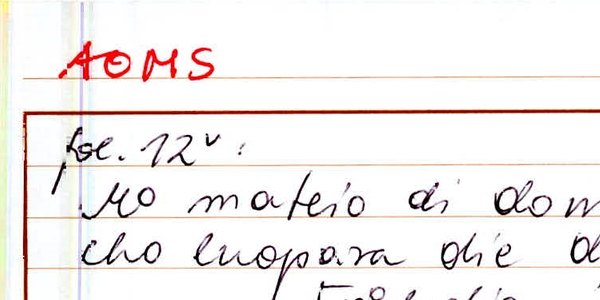 AOMS
fol. 12v:
Mo mateio di dom
cho luopara die d